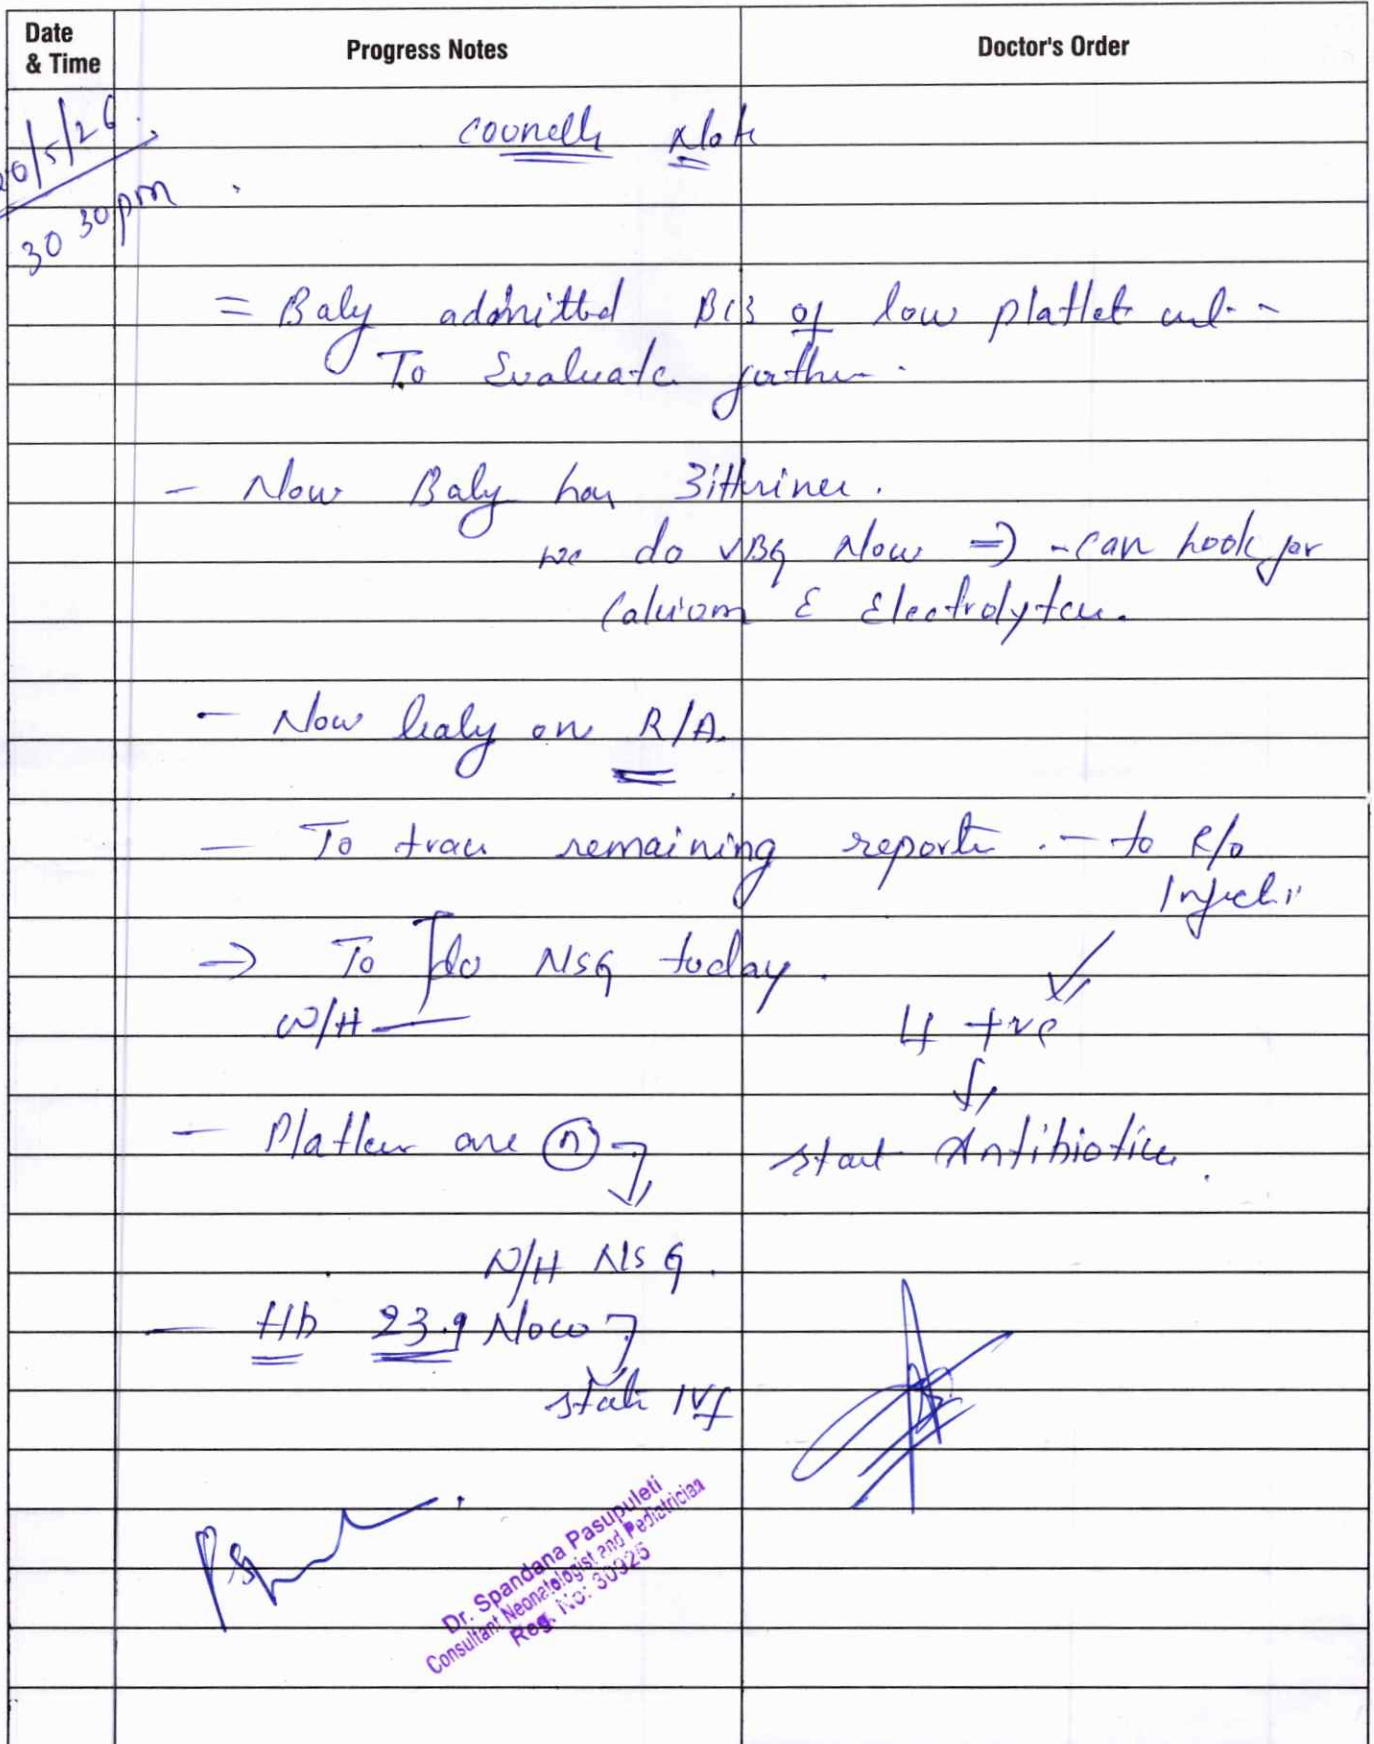 Date & Time
Progress Notes
Doctor's Order
0/5/26
30 30pm
= Baby admitted of low platlet
To Evaluate further.
- Now Baby has Jitterines.
we do VBG Now => - can look for
Calcium & Electrolytes.
- Now baby on R/A.
- To trace remaining reports. - to R/o
Infecti
-> To do NSG today.
W/H
4 +ve
- Platlets are (n)
start Antibiotics.
W/H NSG.
- Hb 23.9 Now
start IVf
Dr. Spandana Pasupuleti
Consultant Neonatologist and Pediatrician
Reg. No: 30926